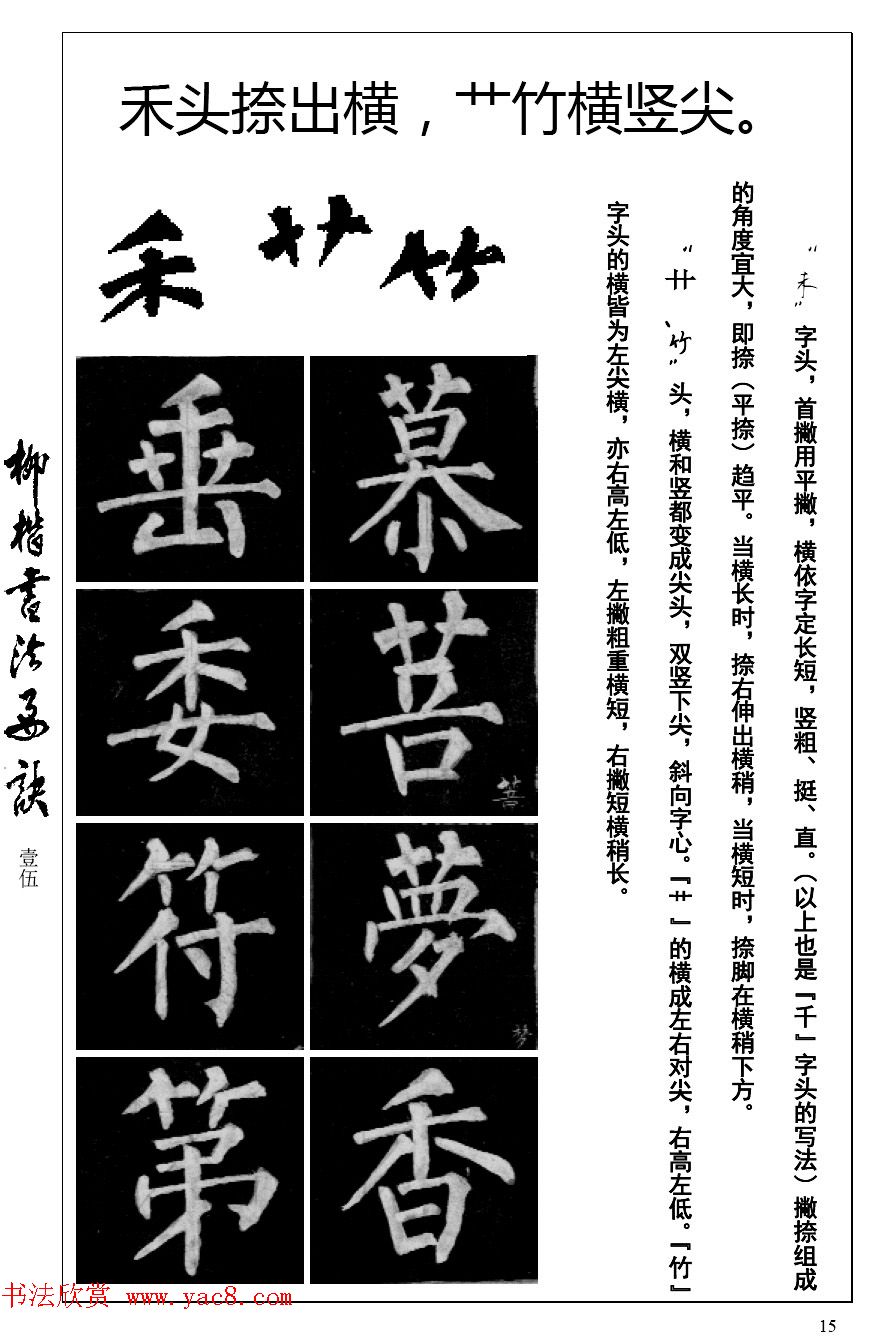 禾头捺出横，艹竹横竖尖。
“禾”字头，首撇用平撇，横依字定长短，竖粗、挺、直。（以上也是『千』字头的写法）撇捺组成
的角度宜大，即捺（平捺）趋平。当横长时，捺右伸出横稍，当横短时，捺脚在横稍下方。
“艹、竹”头，横和竖都变成尖头，双竖下尖，斜向字心。『艹』的横成左右对尖，右高左低。『竹』
字头的横皆为左尖横，亦右高左低，左撇粗重横短，右撇短横稍长。
禾 艹 竹
垂 慕
委 菩
菩
符 夢
梦
第 香
柳楷书法要诀
壹伍
书法欣赏 www.yac8.com
15